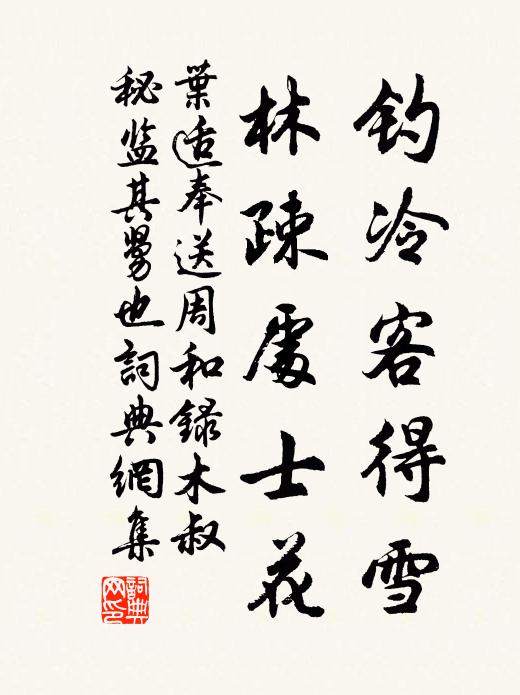 钓冷客得雪
林疎處士花
葉适奉送周和録木叔
秘监其舅也詞典網集
詞典网印